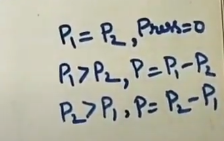 P₁ = P₂, Pres=0
P₁>P₂, P=P₁-P₂
P₂>P₁, P= P₂-P₁